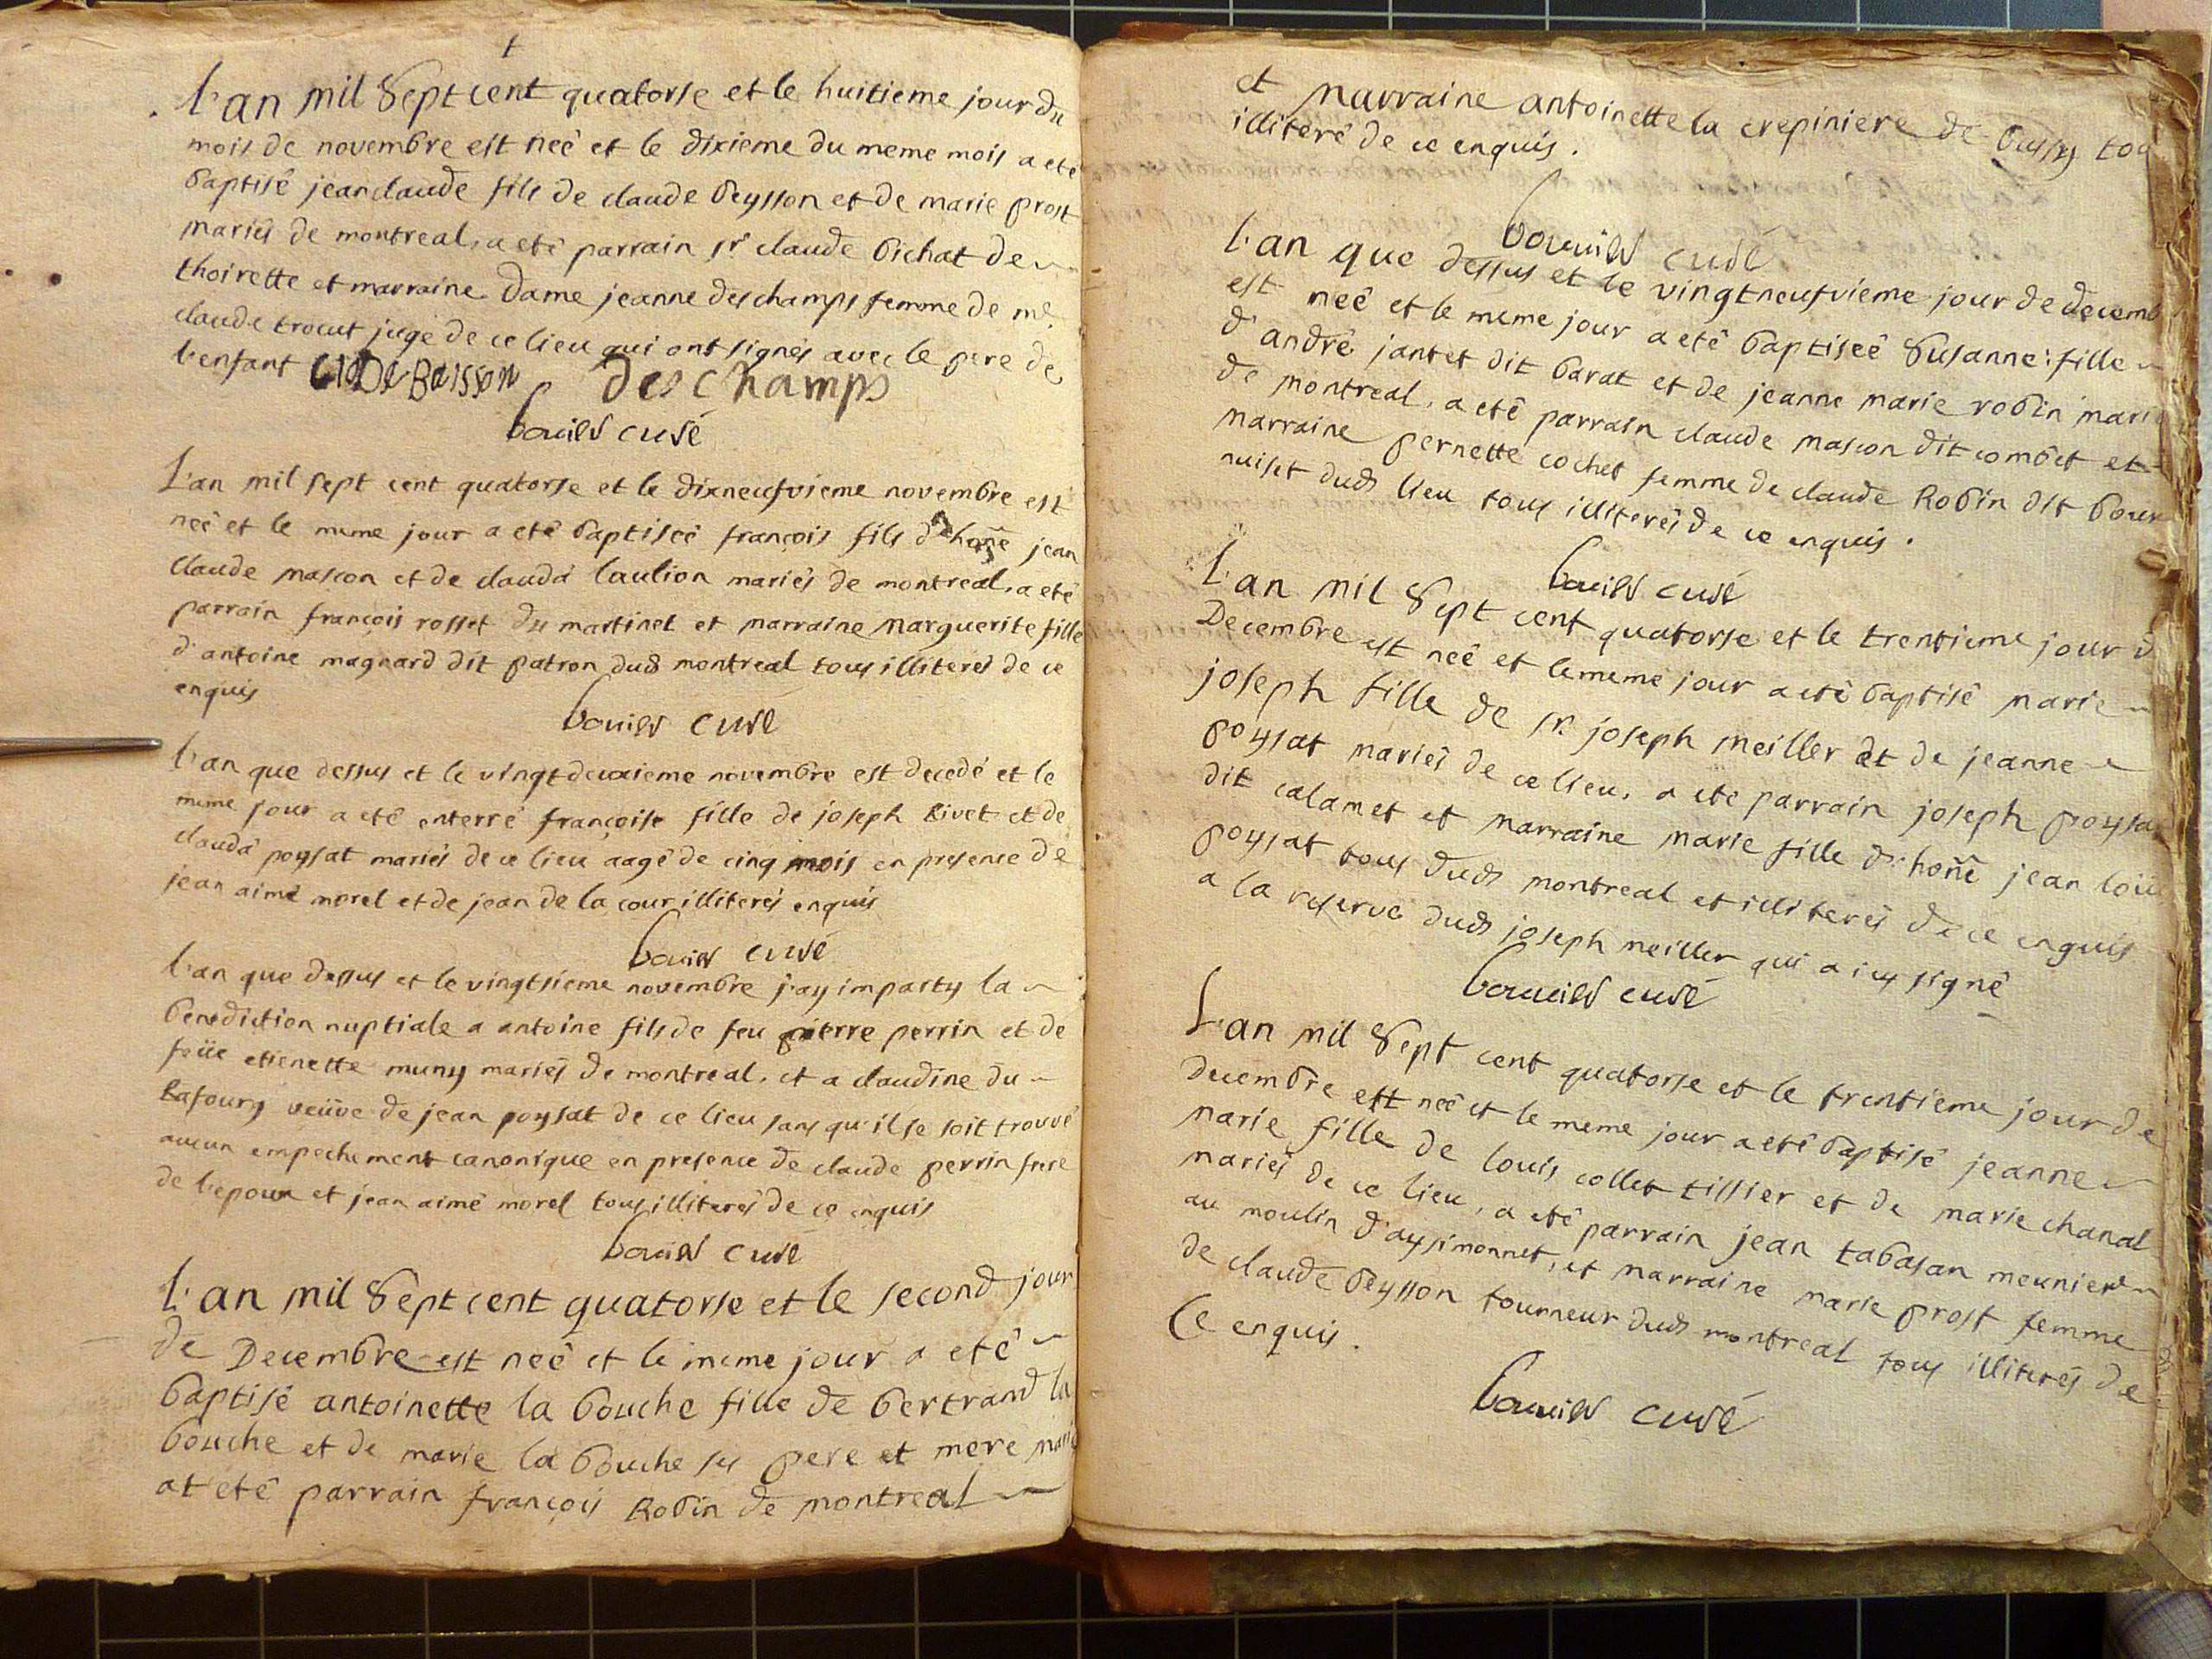 L'an mil sept cent quatorse et le huitieme jour du
mois de novembre est neê et le dixieme du meme mois a eté
baptisê jeanclaude fils de claude beysson et de marie prost
mariés de montreal, a etê parrain sr claude bichat de
thoirette et marraine dame jeanne deschamps femme de me
claude trocut juge de ce lieu qui ont signés avec le pere de
l'enfant
deschamps
curé
L'an mil sept cent quatorse et le dixneufvieme novembre est
neê et le meme jour a etê baptiseê françois fils d'honê jean
claude mascon et de clauda laulion mariés de montreal, a eté
parrain françois rosset du martinet et marraine marguerite fille
d'antoine magnard dit patron dud montreal tous illiterés de ce
enquis
curé
L'an que dessus et le vingtdeuxieme novembre est decedé et le
meme jour a eté enterré françoise fille de joseph Rivet et de
clauda poysat mariés de ce lieu aagé de cinq mois en presence de
jean aimé morel et de jean de la cour illiterés enquis
curé
L'an que dessus et le vingtsieme novembre j'ay imparty la
benediction nuptiale a antoine fils de feu pierre perrin et de
feüe etienette muny mariés de montreal, et a claudine du
tafoury veüve de jean poysat de ce lieu sans qu'il se soit trouvé
aucun empechement canonique en presence de claude perrin frere
de l'epoux et jean aimé morel tous illiterés de ce enquis
curé
L'an mil sept cent quatorse et le second jour
de Decembre est neê et le meme jour a etê
baptisé antoinette la bouche fille de bertrand la
bouche et de marie la bouche ses pere et mere
at etê parrain françois Robin de montreal
et marraine antoinette la crepiniere de bussy
illiterê de ce enquis.
curé
L'an que dessus et le vingtneufvieme jour de decemb
est neê et le meme jour a etê baptiseê Susanne fille
d'andrê jantet dit barat et de jeanne marie robin
de montreal, a etê parrain claude mascon dit combet et
marraine pernette cochet femme de claude Robin dit bour
nuiset dud lieu tous illiterés de ce enquis.
curé
L'an mil sept cent quatorse et le trentieme jour d
Decembre est neê et le meme jour a etê baptisê marie
joseph fille de sr joseph meiller et de jeanne
poysat mariés de ce lieu, a eté parrain joseph poysa
dit calamet et marraine marie fille d'honê jean loüi
poysat tous dud montreal et illiterés de ce enquis
a la reserve dud joseph meiller qui a icy signé
curé
L'an mil sept cent quatorse et le trentieme jour de
decembre est neê et le meme jour a etê baptisé jeanne
marie fille de louis collet tissier et de marie chanal
mariés de ce lieu, a etê parrain jean tabasan meunier
au moulin d'aysimonnet, et marraine marie prost femme
de claude beysson tourneur dud montreal tous illiterés de
Ce enquis.
curé